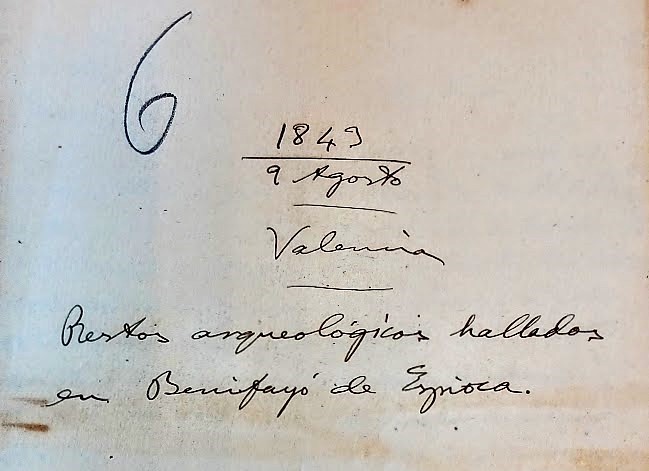 6
1843
9 Agosto
Valencia
Restos arqueológicos hallados
en Benifayó de Espioca.